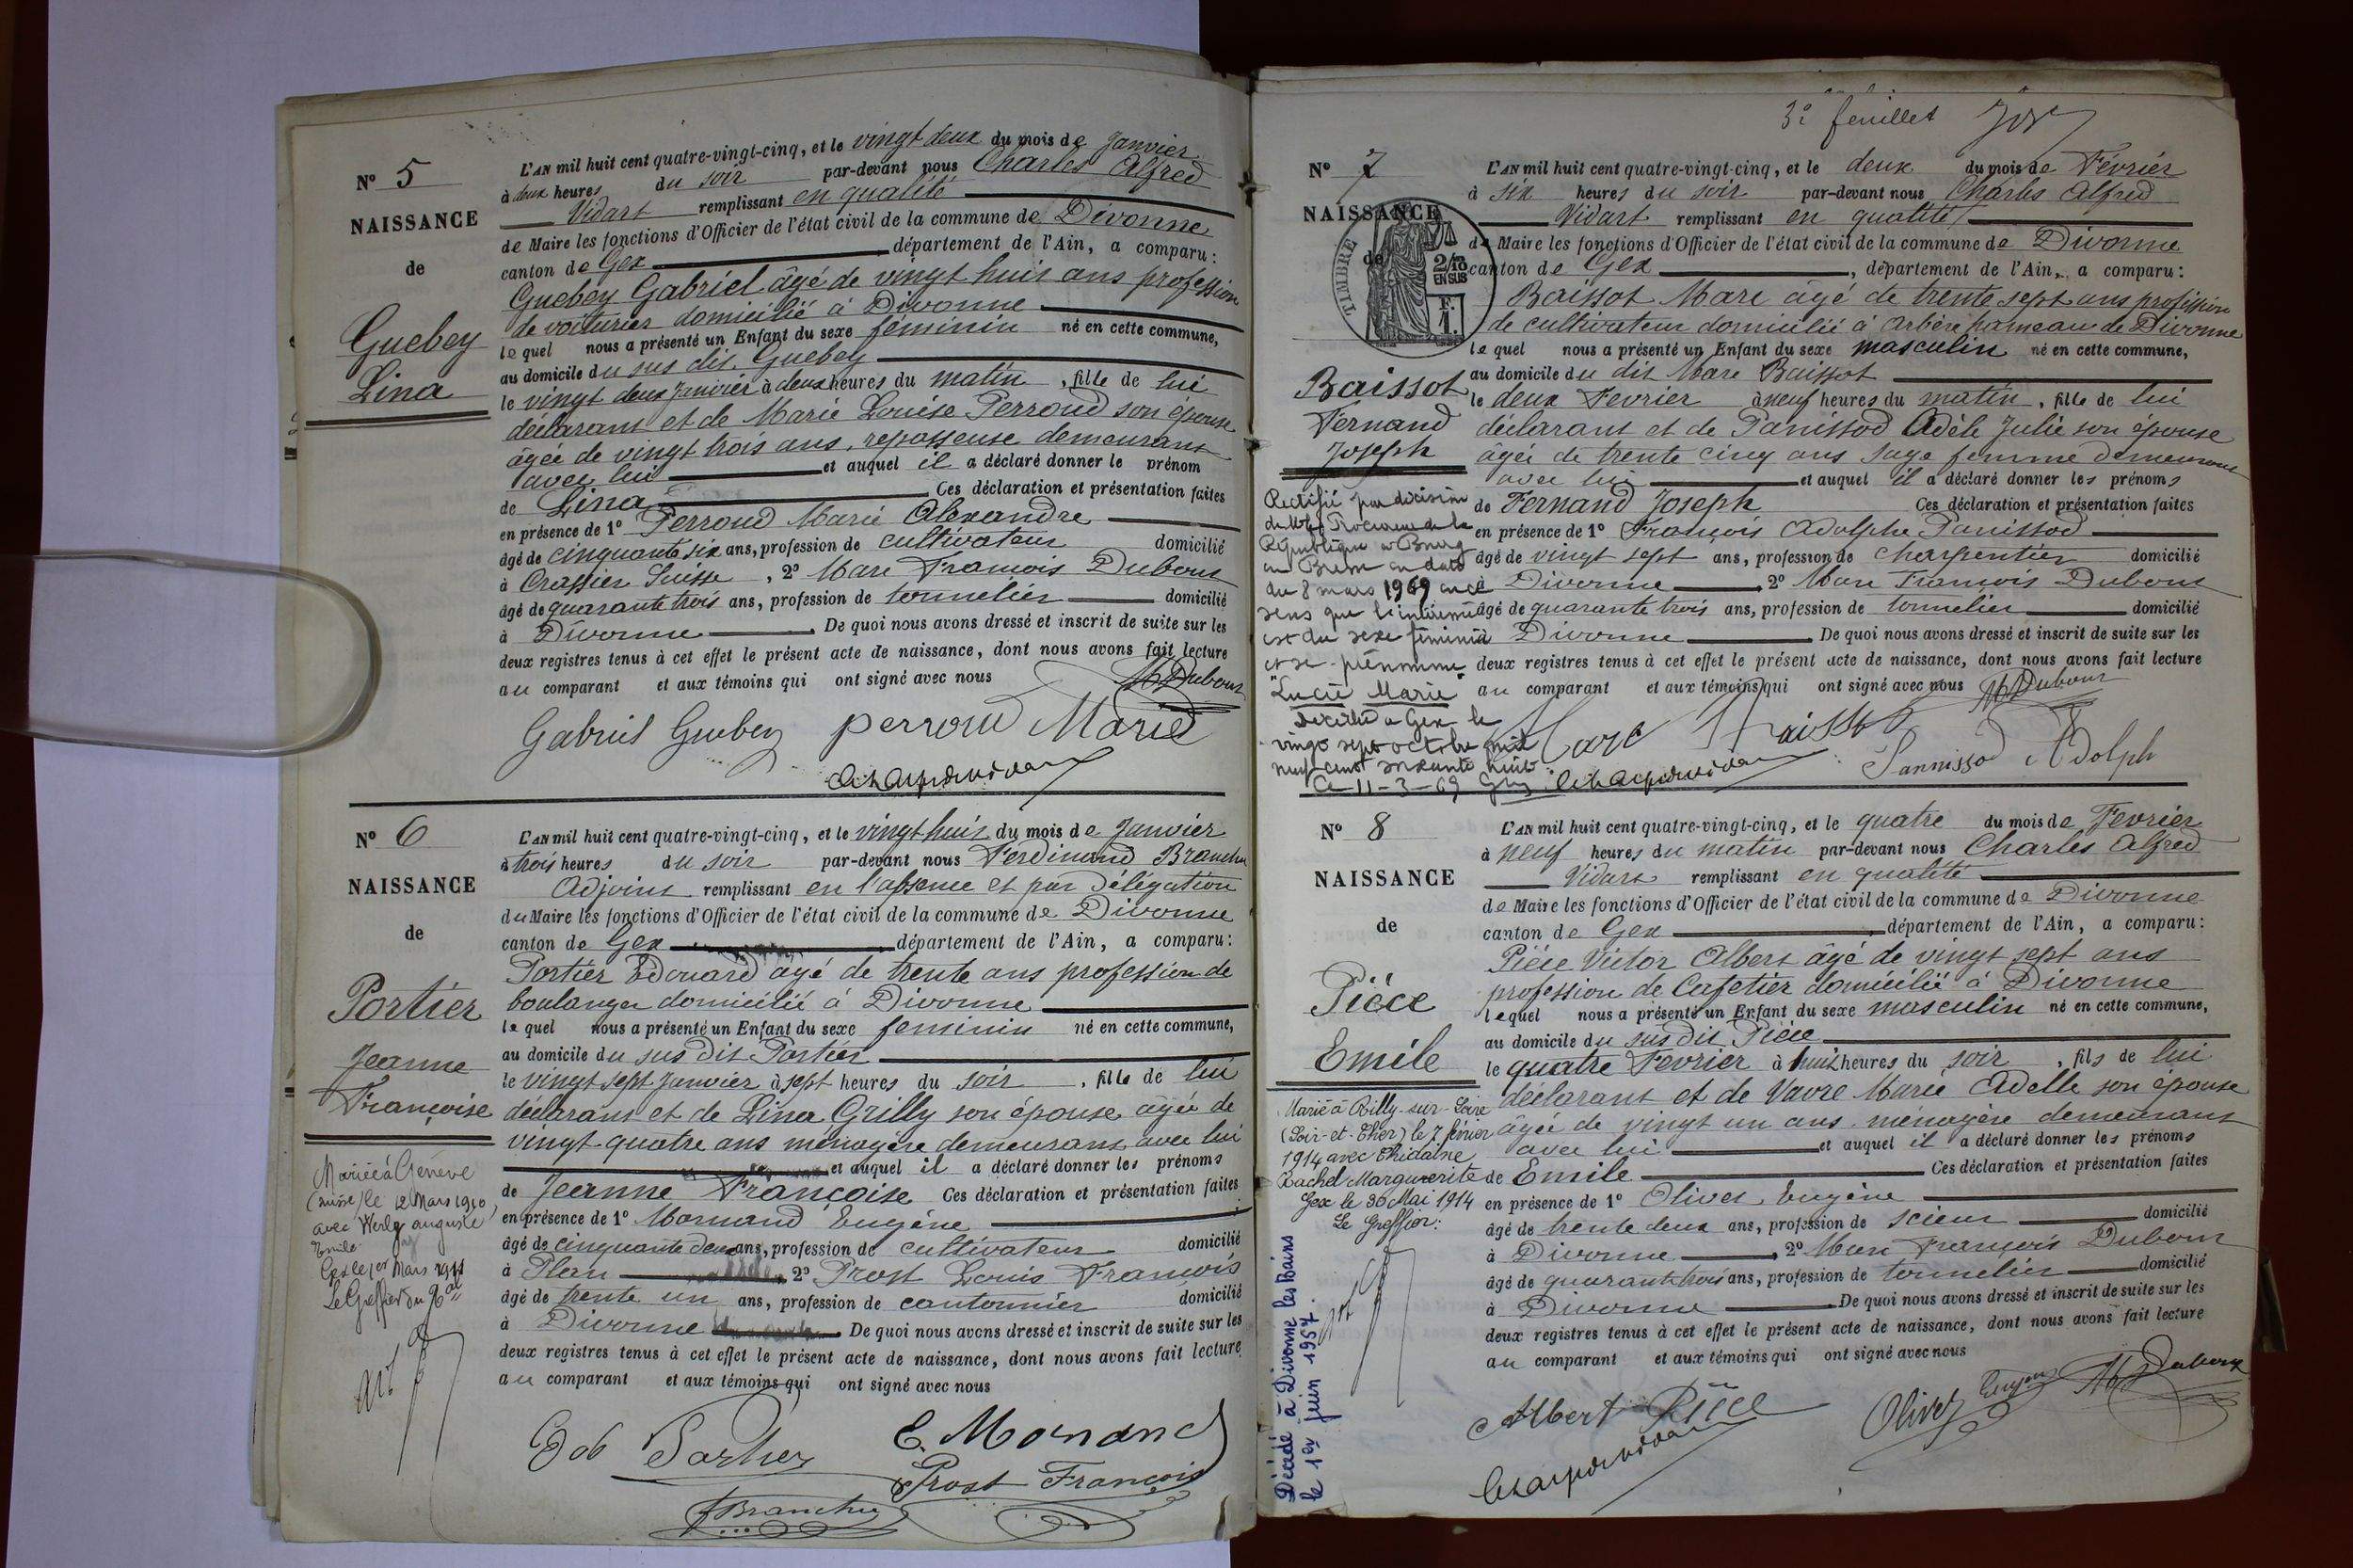 N° 5
NAISSANCE
de
Guebey
Lina
L'AN mil huit cent quatre-vingt-cinq, et le vingt deux du mois de Janvier
à deux heures du soir par-devant nous Charles Alfred
Vidart remplissant en qualité
de Maire les fonctions d'Officier de l'état civil de la commune de Divonne
canton de Gex département de l'Ain, a comparu:
Guebey Gabriel âgé de vingt huit ans profession
de voiturier domicilié à Divonne
lequel nous a présenté un Enfant du sexe féminin né en cette commune,
au domicile du sus dit Guebey
le vingt deux Janvier à deux heures du matin, fille de lui
déclarant et de Marie Louise Perroud son épouse
âgée de vingt trois ans, repasseuse demeurant
avec lui et auquel il a déclaré donner le prénom
de Lina Ces déclaration et présentation faites
en présence de 1° Perroud Marie Alexandre
âgé de cinquante six ans, profession de cultivateur domicilié
à Crassier Suisse, 2° Marc François Dubout
âgé de quarante trois ans, profession de tonnelier domicilié
à Divonne. De quoi nous avons dressé et inscrit de suite sur les
deux registres tenus à cet effet le présent acte de naissance, dont nous avons fait lecture
au comparant et aux témoins qui ont signé avec nous
Gabriel Guebey perroud Marie
N° 6
NAISSANCE
de
Portier
Jeanne
Françoise
Mariée à Genève
(Suisse) le 12 Mars 1910
avec
auguste
Emile
L'AN mil huit cent quatre-vingt-cinq, et le vingt huit du mois de Janvier
à trois heures du soir par-devant nous Ferdinand Branchu
Adjoint remplissant en l'absence et par délégation
du Maire les fonctions d'Officier de l'état civil de la commune de Divonne
canton de Gex département de l'Ain, a comparu:
Portier Edouard âgé de trente ans profession de
boulanger domicilié à Divonne
lequel nous a présenté un Enfant du sexe feminin né en cette commune,
au domicile du sus dit Portier
le vingt sept Janvier à sept heures du soir, fille de lui
déclarant et de Lina Grilly son épouse âgée de
vingt quatre ans ménagère demeurant avec lui
et auquel il a déclaré donner les prénoms
de Jeanne Françoise Ces déclaration et présentation faites
en présence de 1° Mornand Eugène
âgé de cinquante deux ans, profession de cultivateur domicilié
à Plan 2° Prost Louis François
âgé de trente un ans, profession de cantonnier domicilié
à Divonne De quoi nous avons dressé et inscrit de suite sur les
deux registres tenus à cet effet le présent acte de naissance, dont nous avons fait lecture
au comparant et aux témoins qui ont signé avec nous
Portier E. Mornand
Prost François
FBranchu
3e feuillet
N° 7
NAISSANCE
de
TIMBRE
2/10
EN SUS
F.
1.
Baissot
Fernand
Joseph
Rectifié par décision
de Mr le Procureur de la
République à Bourg
en Bresse en date
du 8 mars 1969 en ce
sens que l'intéressé
est du sexe féminin
et se prénomme
"Lucie Marie"
Décédée à Gex le
vingt sept octobre mil
neuf cent soixante huit
Ce 11-3-69
L'AN mil huit cent quatre-vingt-cinq, et le deux du mois de Février
à six heures du soir par-devant nous Charles Alfred
Vidart remplissant en qualité
de Maire les fonctions d'Officier de l'état civil de la commune de Divonne
canton de Gex, département de l'Ain, a comparu:
Baissot Marc âgé de trente sept ans profession
de cultivateur domicilié à Arbère hameau de Divonne
lequel nous a présenté un Enfant du sexe masculin né en cette commune,
au domicile du dit Marc Baissot
le deux Fevrier à neuf heures du matin, fille de lui
déclarant et de Panissod Adèle Julie son épouse
âgée de trente cinq ans sage femme demeurant
avec lui et auquel il a déclaré donner les prénoms
de Fernand Joseph Ces déclaration et présentation faites
en présence de 1° François Adolphe Panissod
âgé de vingt sept ans, profession de charpentier domicilié
à Divonne 2° Marc François Dubout
âgé de quarante trois ans, profession de tonnelier domicilié
à Divonne. De quoi nous avons dressé et inscrit de suite sur les
deux registres tenus à cet effet le présent acte de naissance, dont nous avons fait lecture
au comparant et aux témoins qui ont signé avec nous
Marc Baissot Pannissod Adolph
N° 8
NAISSANCE
de
Pièce
Emile
Marié à Rilly-sur-Loire
(Loir-et-Cher) le 7 février
1914 avec Thidaine
Rachel Marguerite
Gex le 30 Mai 1914
Le Greffier:
Décédé à Divonne les Bains
le 1er juin 1957.
L'AN mil huit cent quatre-vingt-cinq, et le quatre du mois de Fevrier
à neuf heures du matin par-devant nous Charles Alfred
Vidart remplissant en qualité
de Maire les fonctions d'Officier de l'état civil de la commune de Divonne
canton de Gex département de l'Ain, a comparu:
Pièce Victor Albert âgé de vingt sept ans
profession de Cafetier domicilié à Divonne
lequel nous a présenté un Enfant du sexe masculin né en cette commune,
au domicile du sus dit Pièce
le quatre Fevrier à huit heures du soir, fils de lui
déclarant et de Vavre Marie Adelle son épouse
âgée de vingt un ans ménagère demeurant
avec lui et auquel il a déclaré donner les prénoms
de Emile Ces déclaration et présentation faites
en présence de 1° Olivet Eugène
âgé de trente deux ans, profession de scieur domicilié
à Divonne, 2° Marc François Dubout
âgé de quarante trois ans, profession de tonnelier domicilié
à Divonne. De quoi nous avons dressé et inscrit de suite sur les
deux registres tenus à cet effet le présent acte de naissance, dont nous avons fait lecture
au comparant et aux témoins qui ont signé avec nous
Albert Pièce Olivet Eugene